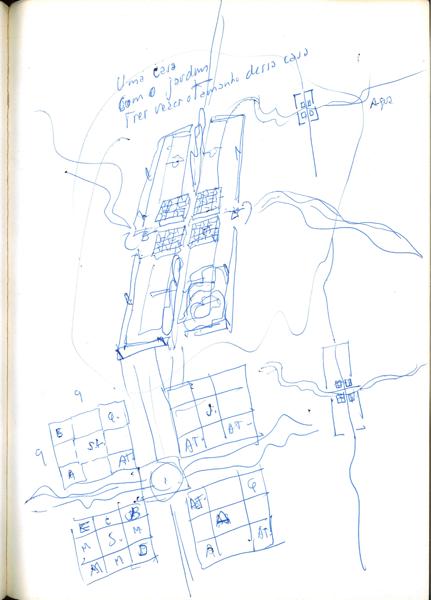 Uma casa
Com o jardim
Tres vezes o tamanho dessa casa
Agua
9
9
E
Q.
S.
A
AT.
J.
AT.
AT.
1
E
C
B
M
S.
M
M
D
Q
A
A
AT.